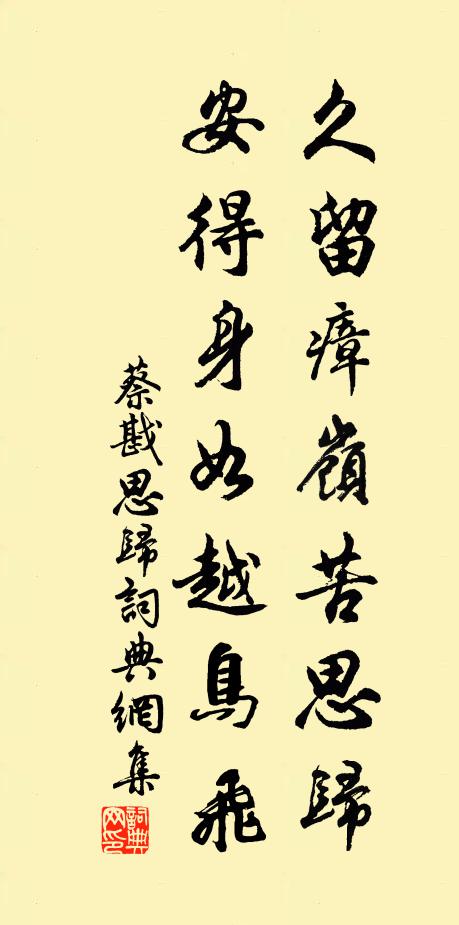 久留瘴嶺苦思歸
安得身如越鳥飛
蔡戡思歸詞典網集
詞典網印